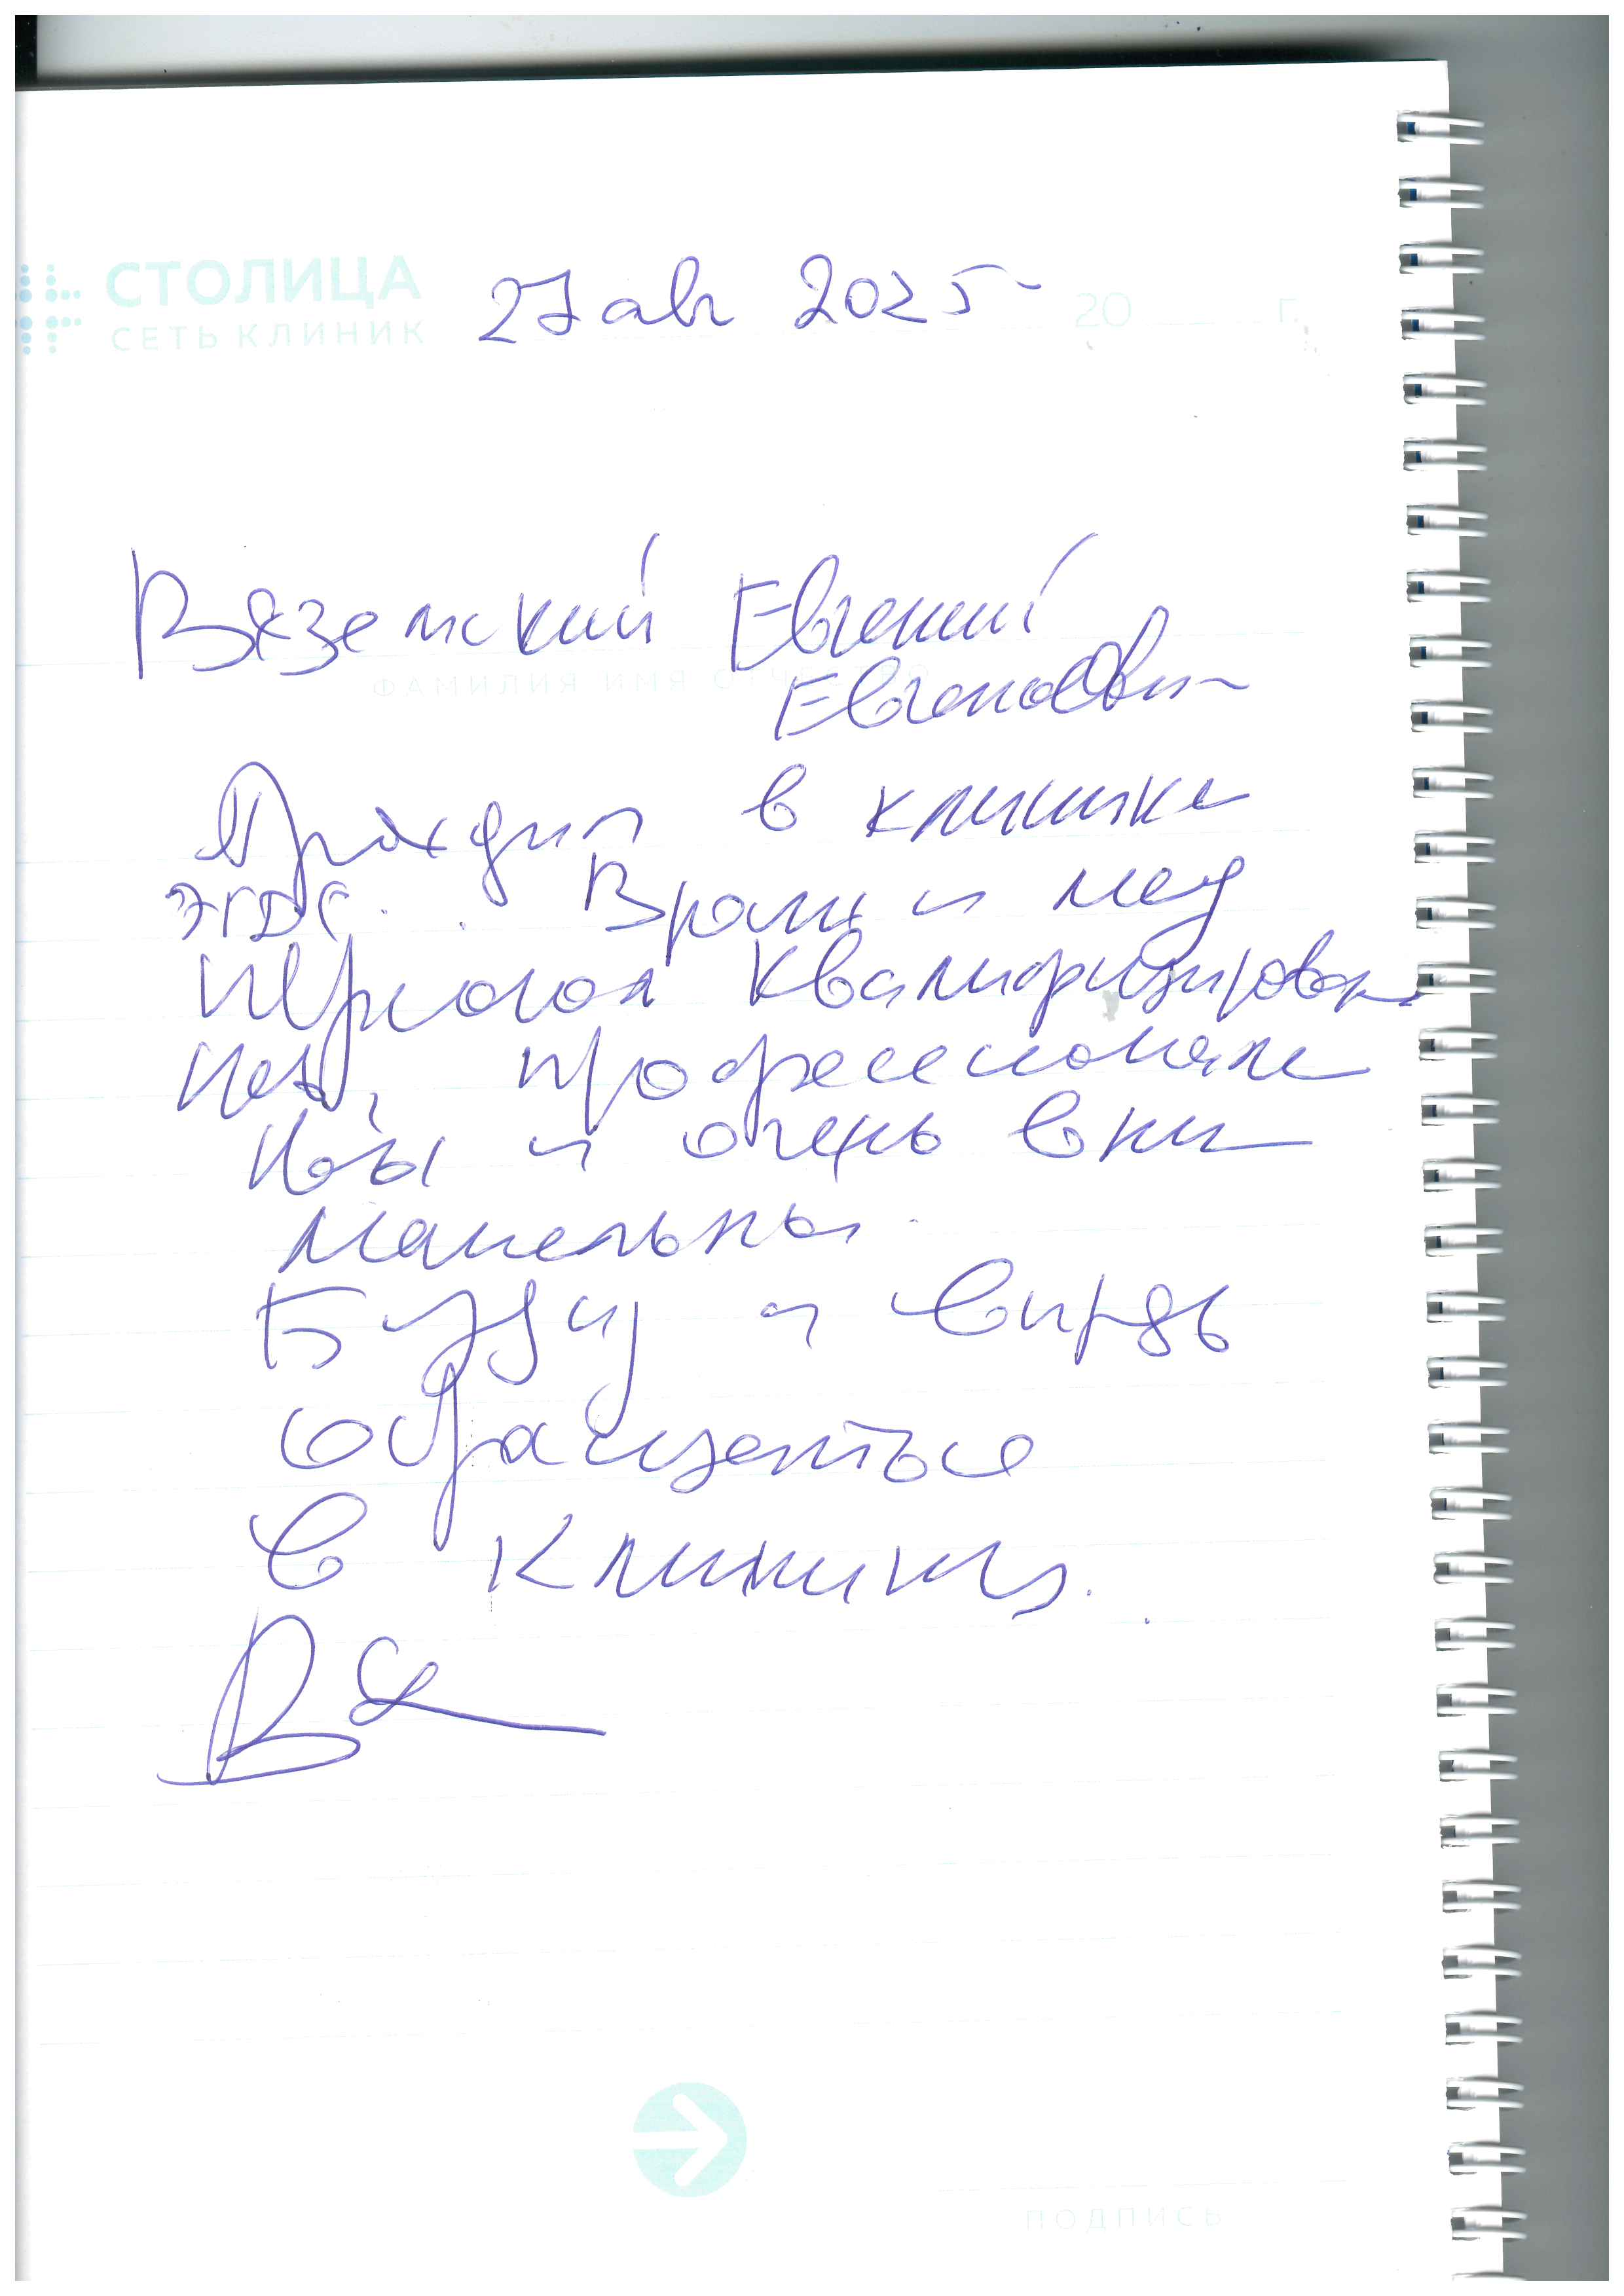 СТОЛИЦА
СЕТЬ КЛИНИК
27 авг 2025 20 г.
Вяземский Евгений
ФАМИЛИЯ ИМЯ ОТЧЕСТВО
Евгеньевич
Проходил в клинике
ЭГДС. Врачи и мед
персонал квалифицирован
ный, профессиональ
ны и очень вни
мательны.
Буду и впредь
обращаться
в клинику.
ПОДПИСЬ